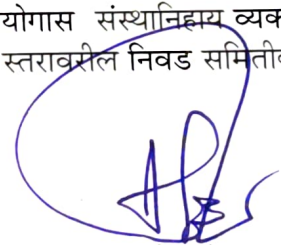 योगास संस्थानिहाय व्यक
स्तरावरील निवड समिती